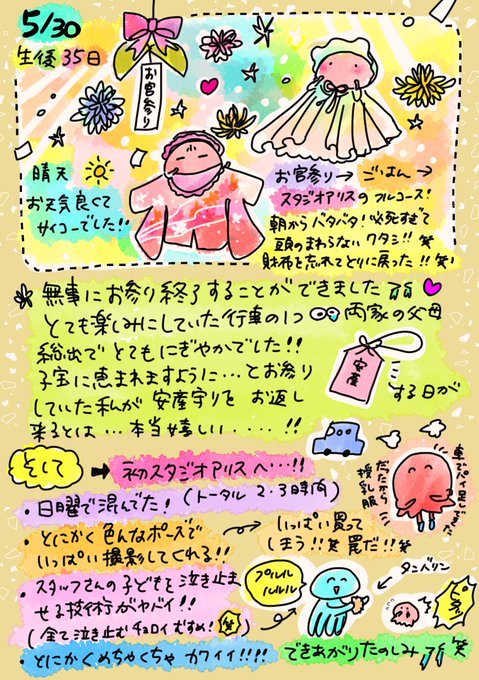 5/30
生後35日
お宮参り
晴天
お天気良くて
サイコーでした!!
お宮参り→ごはん→
スタジオアリスのフルコース!
朝からバタバタ!必死すぎて
頭のまわらないワタシ!!笑
財布を忘れてとりに戻った!!笑
無事にお参り終了することができました
とても楽しみにしていた行事の1つ 両家の父母
総出でとてもにぎやかでした!!
子宝に恵まれますように…とお参り
していた私が安産守りをお返し
する日が
来るとは…本当嬉しい....!!
安産
そして
→初スタジオアリスへ…!!
・日曜で混んでた!(トータル2.3時間)
・とにかく色んなポーズで
いっぱい撮影してくれる!!
→いっぱい買って
しまう!!笑 罠だ!!笑
車でパイ足してきた
だったから
授乳服
・スタッフさんの子どもを泣き止ま
せる技術がヤバイ!!
(全て泣き止むチョロイむすめ!笑)
プルル
ルルル
タンバリン
・とにかくめちゃくちゃカワイイ!!!!
できあがりたのしみ 笑